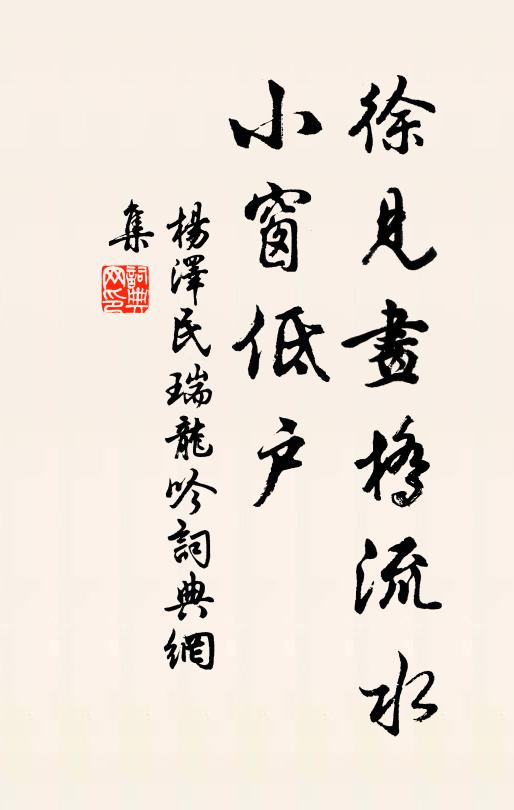 徐見畫橋流水
小窗低戶
楊澤民瑞龍吟詞典網
集
詞典
网印